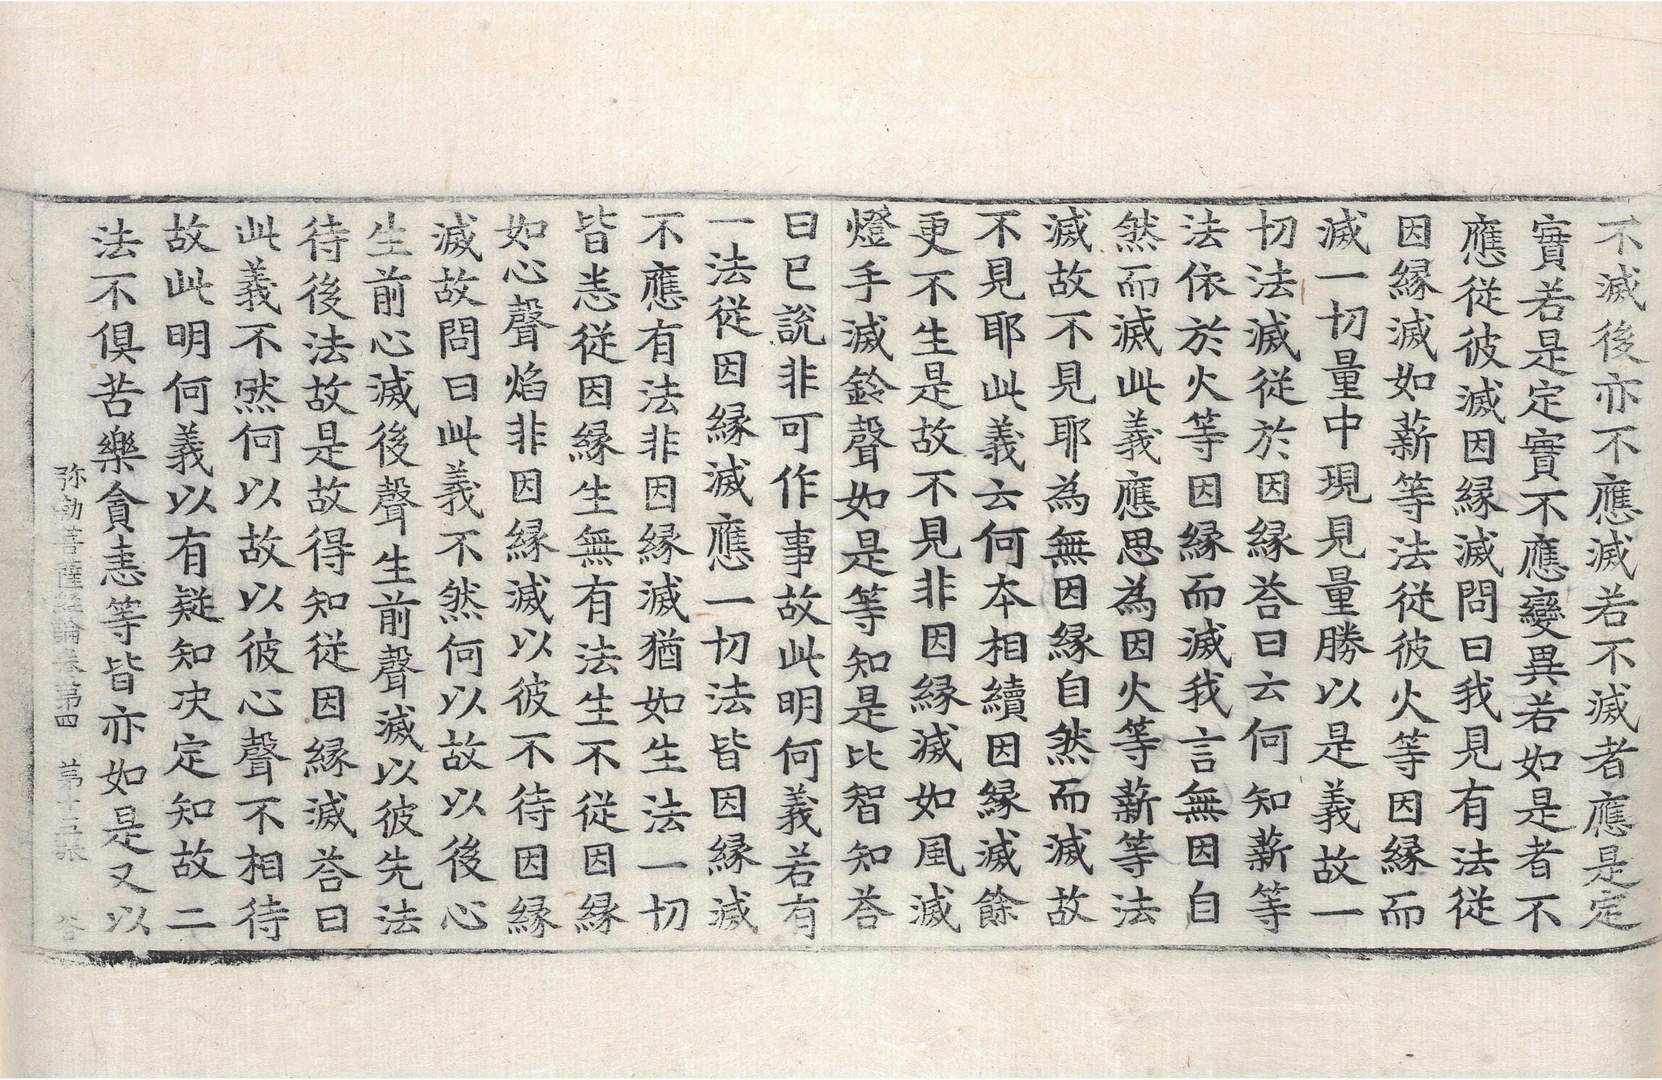 不滅後亦不應滅若不滅者應是定
實若是定實不應變異若如是者不
應從彼滅因縁滅問曰我見有法從
因縁滅如薪等法從彼火等因縁而
滅一切量中現見量勝以是義故一
切法滅從於因縁荅曰云何知薪等
法依於火等因縁而滅我言無因自
然而滅此義應思為因火等薪等法
滅故不見耶為無因縁自然而滅故
不見耶此義云何本相續因縁滅餘
更不生是故不見非因縁滅如風滅
燈手滅鈴聲如是等知是比智知荅
曰已説非可作事故此明何義若有
一法從因縁滅應一切法皆因縁滅
不應有法非因縁滅猶如生法一切
皆悉從因縁生無有法生不從因縁
如心聲焰非因縁滅以彼不待因縁
滅故問曰此義不然何以故以後心
生前心滅後聲生前聲滅以彼先法
待後法故是故得知從因縁滅荅曰
此義不然何以故以彼心聲不相待
故此明何義以有疑知決定知故二
法不俱苦樂貪恚等皆亦如是又以
弥勒菩薩經論卷第四 第十五張 荅